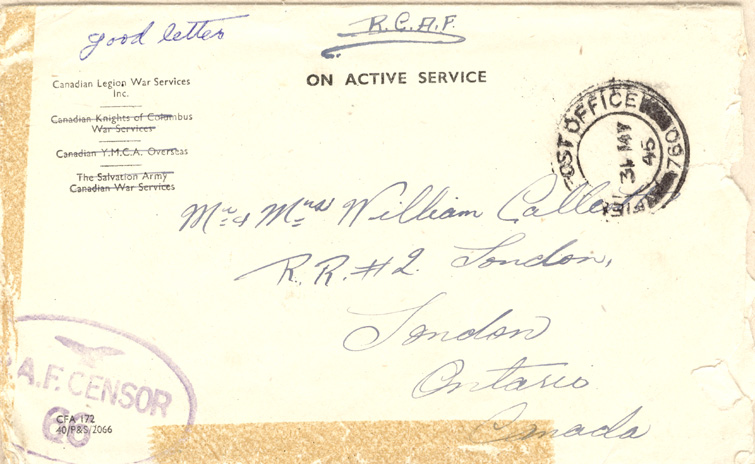 good letter
R.C.A.F.
Canadian Legion War Services
Inc.
Canadian Knights of Columbus
War Services
Canadian Y.M.C.A. Overseas
The Salvation Army
Canadian War Services
ON ACTIVE SERVICE
POST OFFICE 097
31 MY
45
FIEL
Mr. & Mrs William
R.R. #2. London,
London
Ontario
Canada
A.F. CENSOR
66
CFA 172
40/P&S/2066